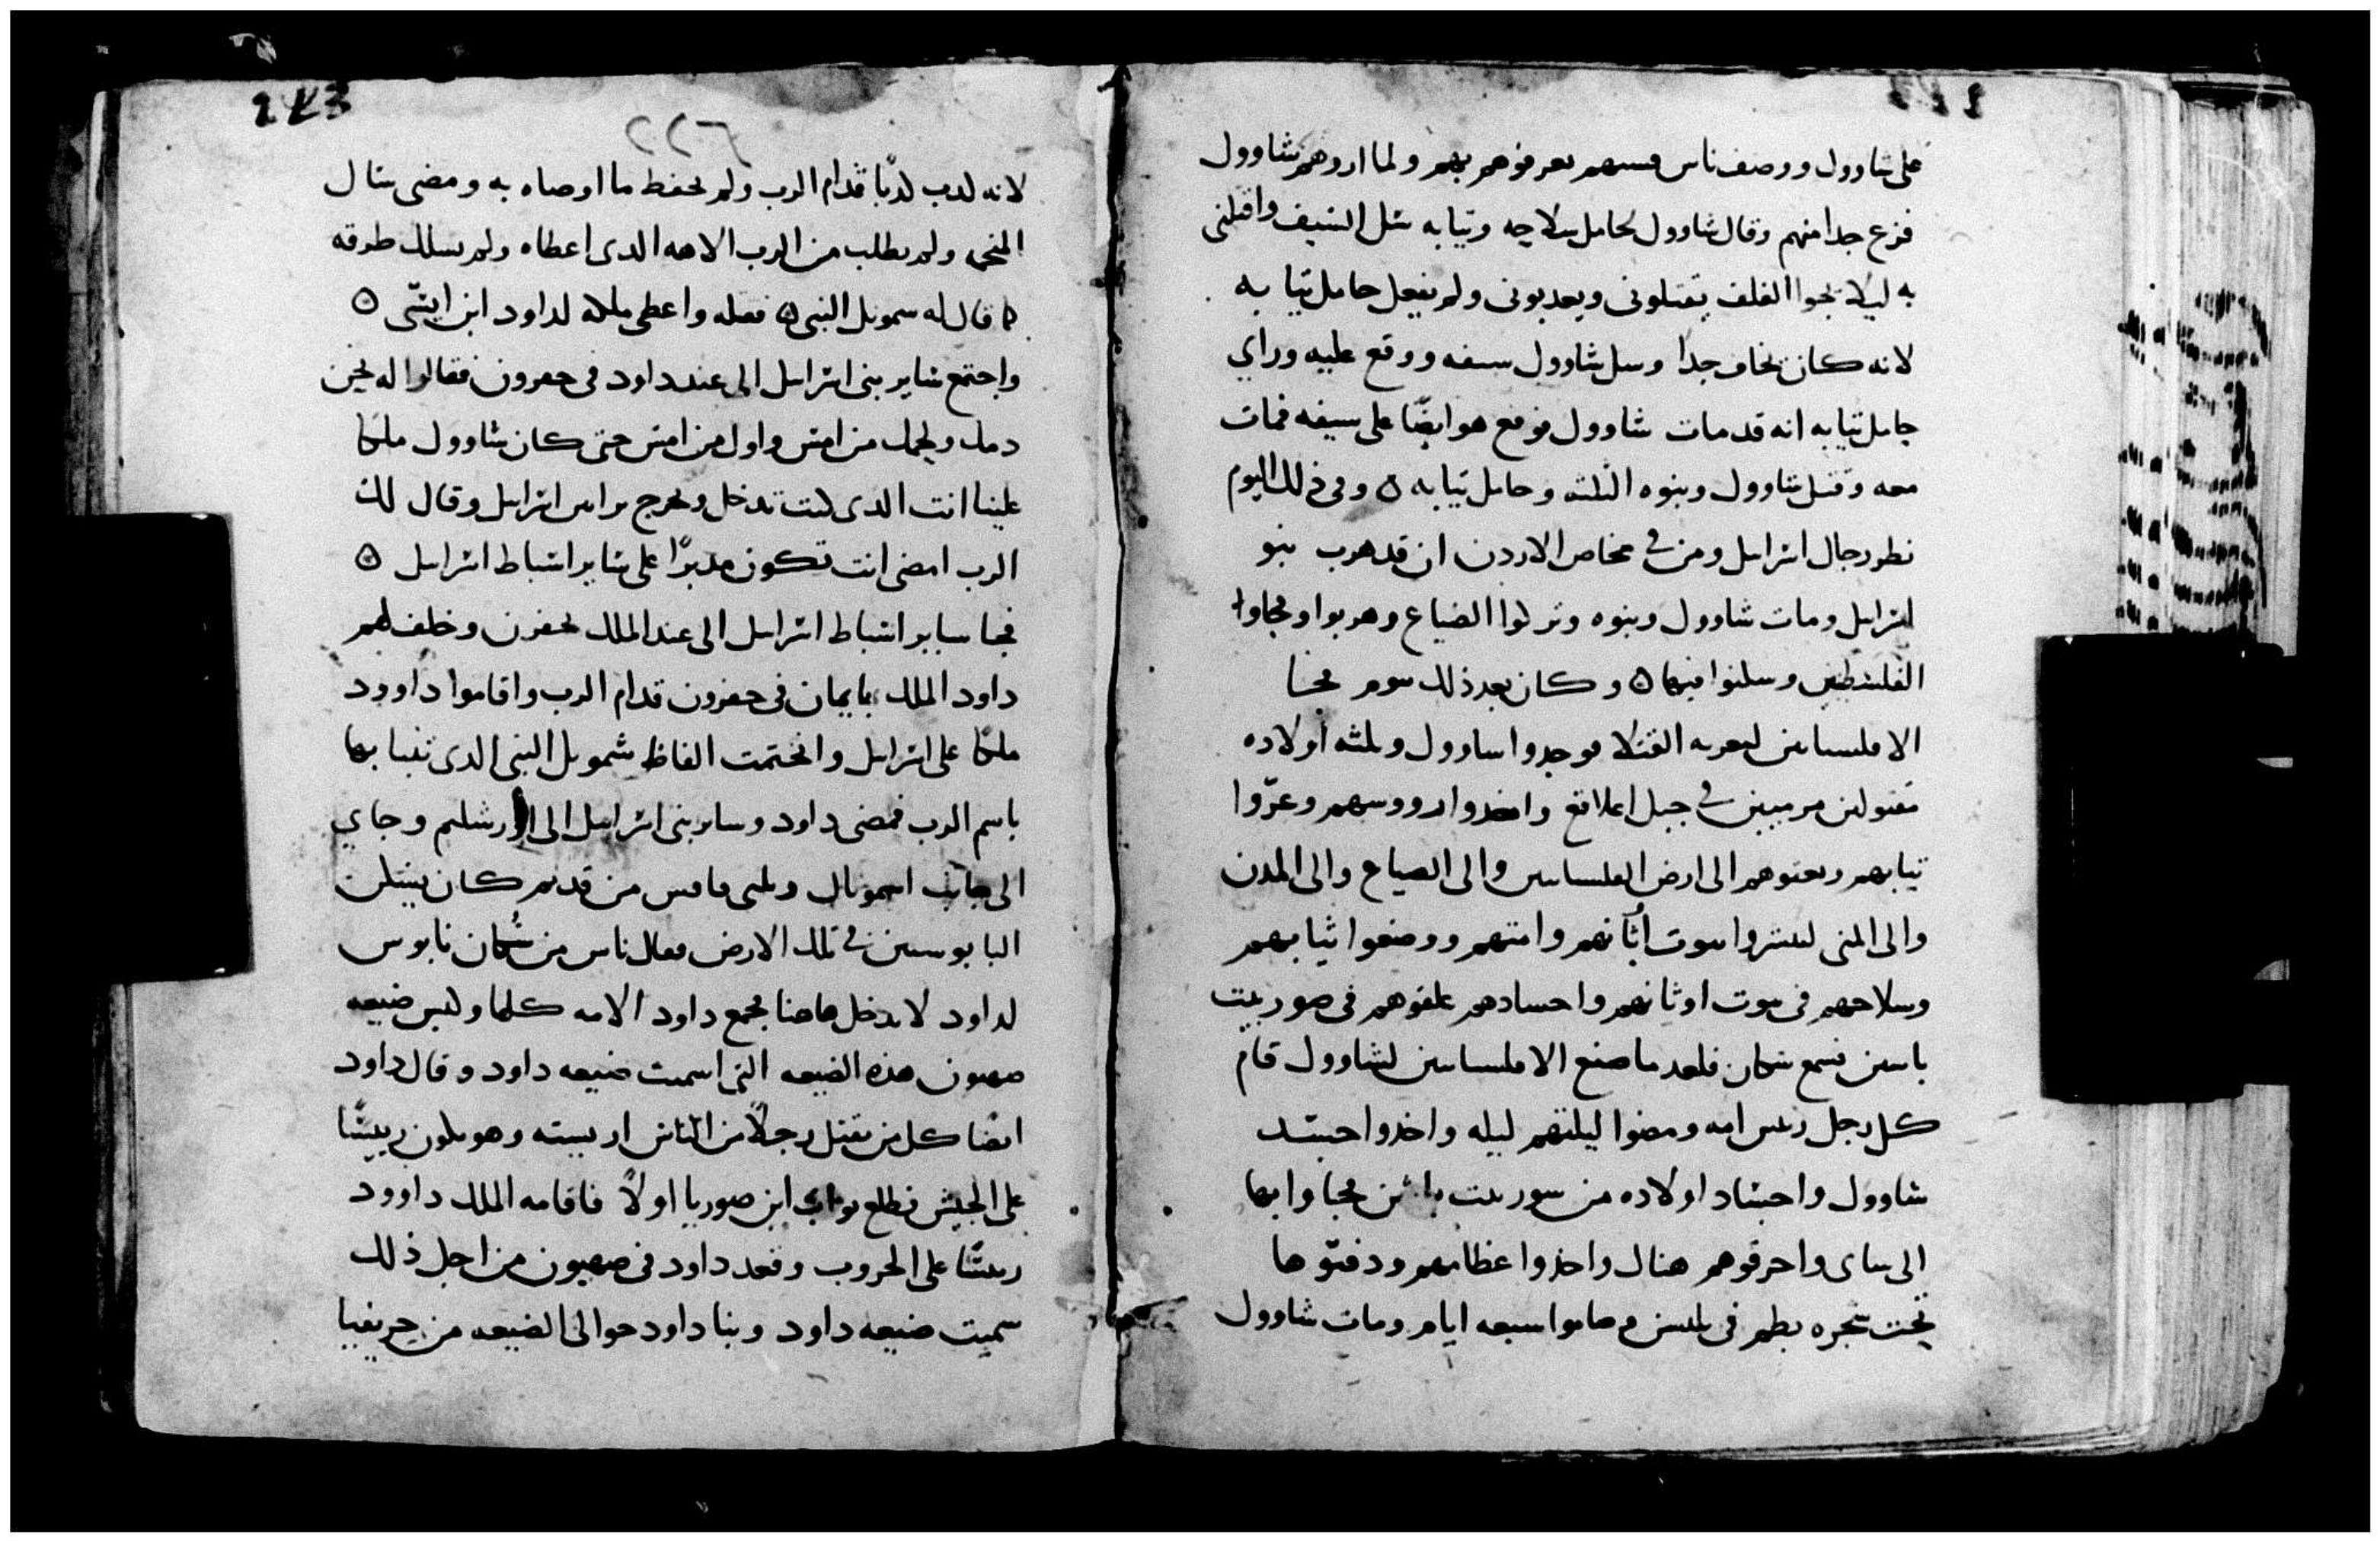 على شاوول ووصف ناس قسيهم يعرفوهم بهم ولما اروهم شاوول
فزع جدا منهم وقال شاوول لحامل سلاحه وثيابه سل السيف واقتلني
به ليلا يجوا الغلف يقتلوني ويعدبوني ولم يفعل حامل ثيابه
لانه كان يخاف جدا وسل شاوول سيفه ووقع عليه وراي
حامل ثيابه انه قد مات شاوول فوقع هو ايضا على سيفه فمات
معه وقتل شاوول وبنوه الثلثه وحامل ثيابه ۞ وفي ذلك اليوم
نظر رجال اسراىل ومن في مخاض الاردن ان قد هرب بنو
اسراىل ومات شاوول وبنوه وتركوا الضياع وهربوا وجاوا
الفلسطيين وسكنوا فيها ۞ وكان بعد ذلك بيوم جا
الافلسيانين لتعريه القتلا فوجدوا شاوول وثلثه اولاده
مقتولين مرميين في جبل اعلاقع واخدوا رووسهم وعروا
ثيابهم وبعثوهم الى ارض الفلسانيين والى الضياع والى المدن
والى المنى ليبشروا بيوت اثانهم وامتهم ووضعوا ثيابهم
وسلاحهم في بيوت اوثانهم واجسادهم علقوهم في صور بيت
باسين فسمع سكان فلعد ما صنع الافلسيانيين لشاوول قام
كل رجل ريس امه ومضوا ليلتهم ليله واخدوا جسد
شاوول واجساد اولاده من سور بيت فجاوا بها
الى يباى واحرقوهم هناك واخدوا عظامهم ودفنوها
تحت شجره بطم في يابس وصاموا سبعه ايام ومات شاوول
243
٢٢٦
لانه لدب لدبا قدام الرب ولم يحفظ ما اوصاه به ومضى سال
المنجمه ولم يطلب من الرب الاهه الدي اعطاه ولم يسلك طرقه
كما قال له سموىل النبي ۞ فقتله واعطى ملكه لداود ابن ايسى ۞
واجتمع ساير بني اسراىل الى عند داود في حبرون فقالوا له نحن
دمك ولحمك من امس واول من امس حتى كان شاوول ملكا
علينا انت الدي كنت تدخل وتخرج براس اسراىل وقال لك
الرب امضى انت تكون مدبرا على ساير اسباط اسراىل ۞
فجا ساير اسباط اسراىل الى عند الملك لحفرون وخلف لهم
داود الملك بايمان في حفرون قدام الرب واقاموا داوود
ملكا على اسراىل وانختمت الفاظ شموىل النبي الدي تنبا بها
باسم الرب فمضى داود وساير بني اسراىل الى اورشليم وجاي
الى جانب من قديم كان يسكن
اليابوسيين في تلك الارض فقال ناس من سكان نابوس
لداود لا تدخل هاهنا فجمع داود الامه كلها وكبس ضيعه
صهيون هذه الضيعه التي اسميت ضيعه داود وقال داود
ايضا كل من يقتل رجلا من الناس اريسته وهو يكون ريسا
على الجيش فطلع يواب ابن صوريا اولا فاقامه الملك داوود
ريسا على الحروب وقعد داود في صهيون من اجل ذلك
سميت ضيعه داود وبنا داود حوالى الضيعه من